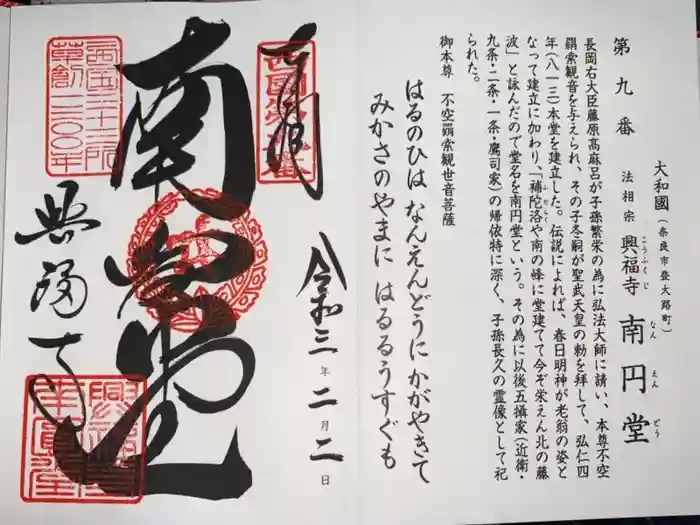 第九番
大和國（奈良市登大路町）
法相宗 興福寺 南円堂
こうふくじ なんえんどう
長岡右大臣藤原高麻呂が子孫繁栄の為に弘法大師に請い、本尊不空
羂索観音を与えられ、その子冬嗣が聖武天皇の勅を拝して、弘仁四
年（八一三）本堂を建立した。伝説によれば、春日明神が老翁の姿と
なって建立に加わり、「補陀洛や南の峰に堂建てて今ぞ栄えん北の藤
ふだらく
波」と詠んだので堂名を南円堂という。その為に以後五攝家（近衛・
九条・二条・一条・鷹司家）の帰依特に深く、子孫長久の霊像として祀
られた。
御本尊 不空羂索観世音菩薩
はるのひは なんえんどうにかがやきて
みかさのやまに はるるうすぐも
奉拝
西国第九番
令和三年二月二日
南円堂
西国三十三所
草創一三〇〇年
興福寺
興福寺
南圓堂